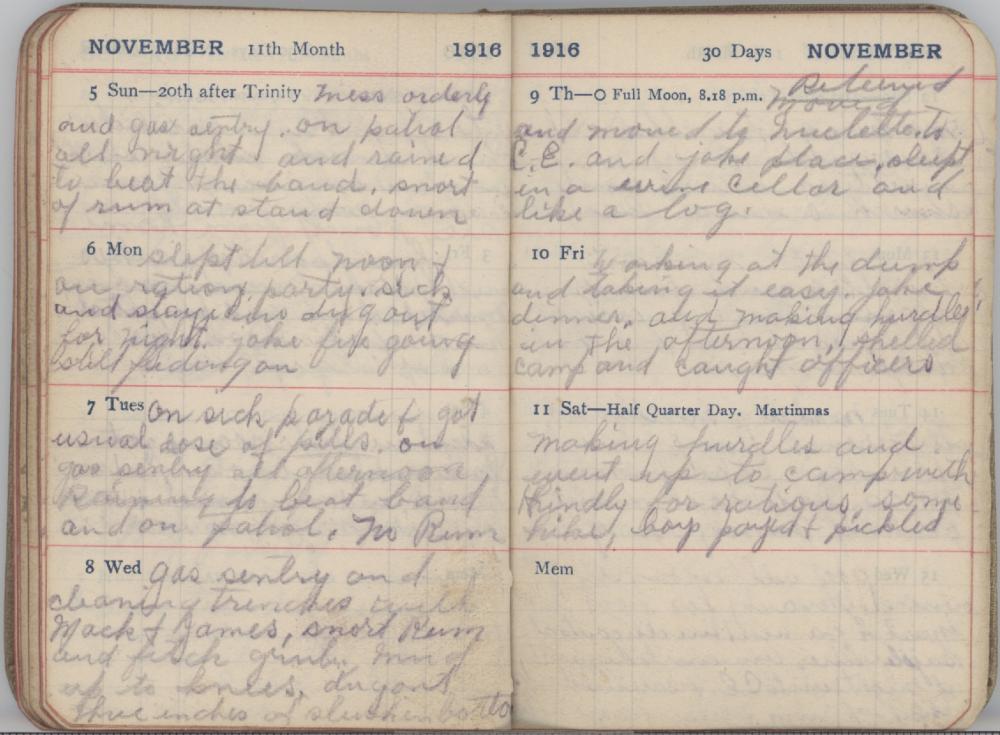 NOVEMBER 11th Month 1916
5 Sun—20th after Trinity mess orderly
and gas sentry. on patrol
all night and rained
to beat the band. snort
of rum at stand down
6 Mon slept till noon
on ration party. sick
and stayed in dug out
for night. jake fire going
still feeding on
7 Tues on sick parade & got
usual dose of pills. on
gas sentry all afternoon
Raining to beat band
and on patrol. No Rum
8 Wed gas sentry and
cleaning trenches with
Mack & James, snort Rum
and fetch grub. Mud
up to knees. dugout
three inches of slush on bottom
1916 30 Days NOVEMBER
9 Th—O Full Moon, 8.18 p.m. Relieved
moved
and moved to to
C.E. and jake place. slept
in a wine cellar and
like a log.
10 Fri Working at the dump
and taking it easy. jake
dinner. and making hurdles
in the afternoon, shelled
camp and caught officers
11 Sat—Half Quarter Day. Martinmas
making hurdles and
went up to camp with
for rations. some
hike, boys payed & pickled
Mem